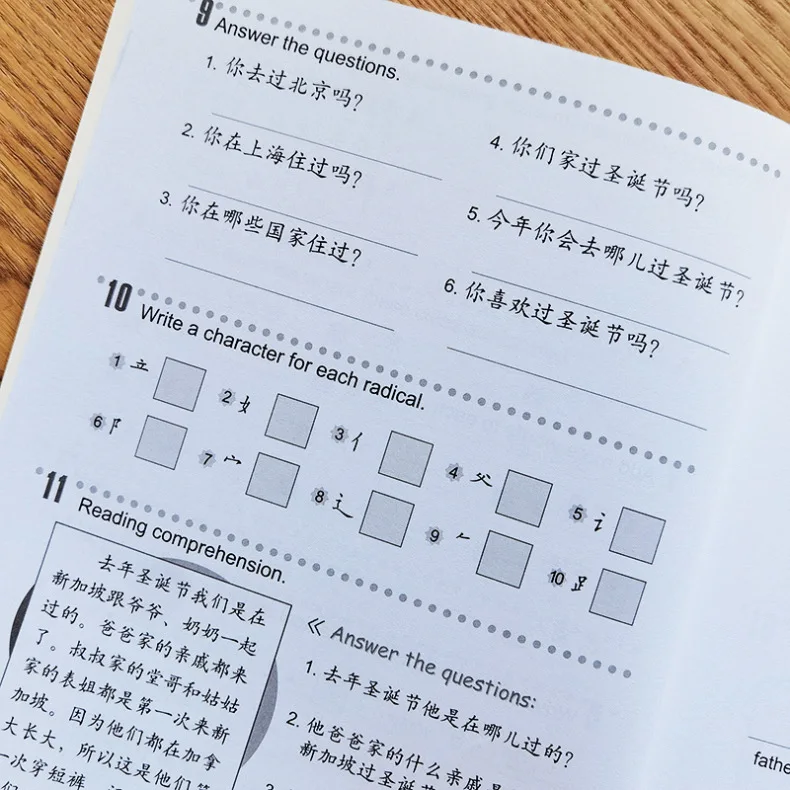 9
Answer the questions.
1. 你去过北京吗?
2. 你在上海住过吗?
3. 你在哪些国家住过?
4. 你们家过圣诞节吗?
5. 今年你会去哪儿过圣诞节?
6. 你喜欢过圣诞节吗?
10
Write a character for each radical.
1 立
2 女
3 亻
4 父
5 讠
6 阝
7 宀
8 辶
9 𠂉
10 𧾷
11
Reading comprehension.
去年圣诞节我们是在
新加坡跟爷爷、奶奶一起
过的。爸爸家的亲戚都来
了。叔叔家的堂哥和姑姑
家的表姐都是第一次来新
加坡。因为他们都在加拿
大长大，所以这是他们第
一次穿短裤
« Answer the questions:
1. 去年圣诞节他是在哪儿过的?
2. 他爸爸家的什么亲戚是
新加坡过圣诞节
fathe